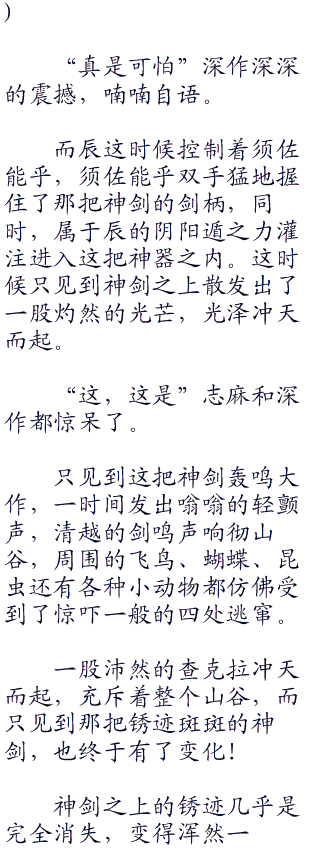 )
“真是可怕”深作深深
的震撼，喃喃自语。
而辰这时候控制着须佐
能乎，须佐能乎双手猛地握
住了那把神剑的剑柄，同
时，属于辰的阴阳遁之力灌
注进入这把神器之内。这时
候只见到神剑之上散发出了
一股灼然的光芒，光泽冲天
而起。
“这，这是”志麻和深
作都惊呆了。
只见到这把神剑轰鸣大
作，一时间发出嗡嗡的轻颤
声，清越的剑鸣声响彻山
谷，周围的飞鸟、蝴蝶、昆
虫还有各种小动物都仿佛受
到了惊吓一般的四处逃窜。
一股沛然的查克拉冲天
而起，充斥着整个山谷，而
只见到那把锈迹斑斑的神
剑，也终于有了变化！
神剑之上的锈迹几乎是
完全消失，变得浑然一